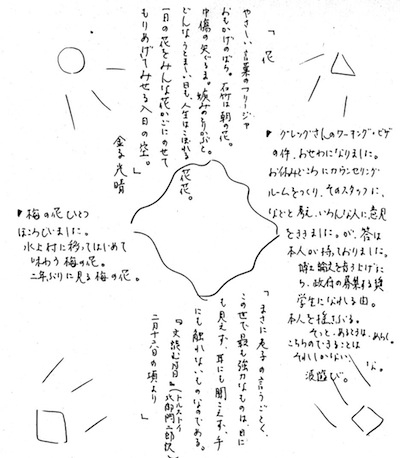 「花
やさしい言葉のフリージヤ
おもかげのばら。石竹は朝の花。
中傷の矢ぐるま。嫉みのとりかぶと。
どんなうとましい日も、人生はこぼれる花花。
一日の花をみんな花かごにのせて
もりあげてみせる入日の空。
金子光晴」
▼グレッグさんのワーキング・ビザ
の件、おせわになりました。
お休みどころにカウンセリング
ルームをつくり、そのスタッフに、
などと考え、いろんな人に意見
をききました。が、答は
本人が持っておりました。
博士論文を書き上げに
ち、政府の募集する奨
学生になれる由。
本人を揺さぶる。
そっと、あるときは、あらく。
こちらのできることは
それしかない、な。
波遊び。
▼梅の花ひとつ
ほころびました。
水上村に移ってはじめて
味わう梅の花。
二年ぶりに見る梅の花。
「まさに老子の言うごとく、
この世で最も強力なものは、目に
も見えず、耳にも聞こえず、手
にも触れないものなのである。
『文読む月日』(トルストイ
北御門二郎訳)
二月十六日の項より」